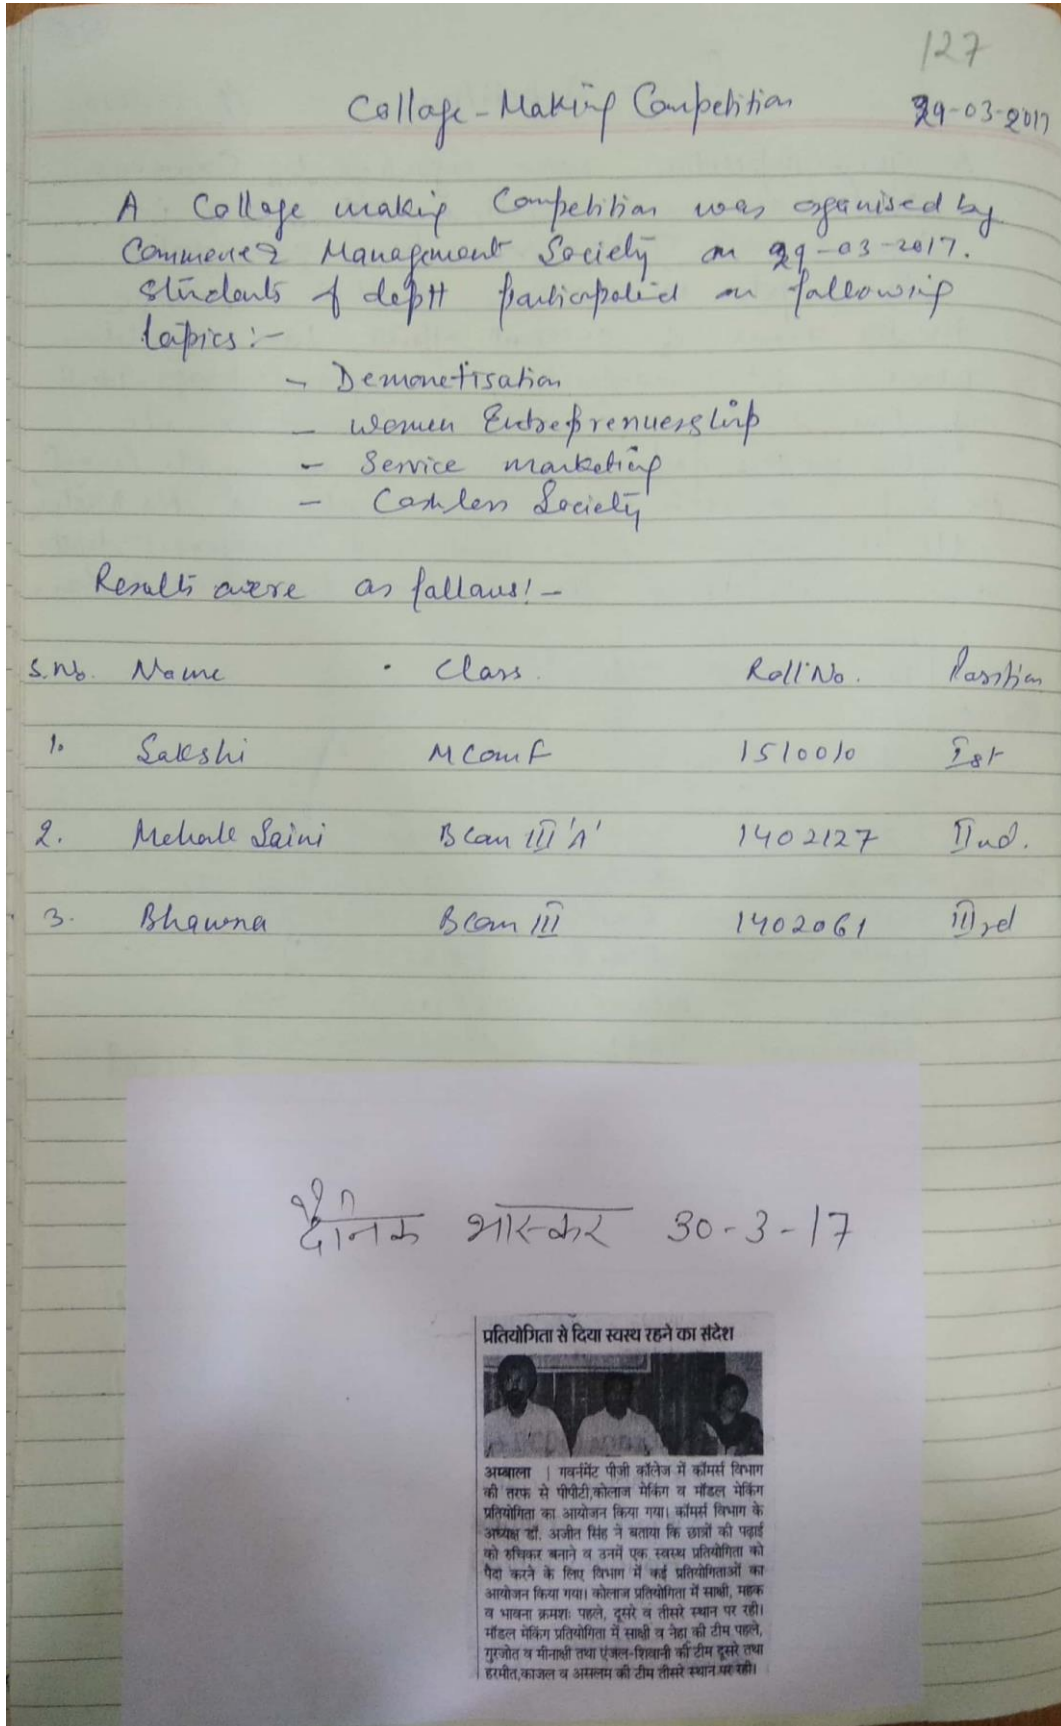 127
Collage-Making Competition 29-03-2017
A Collage making Competition was organised by
Commerce & Management Society on 29-03-2017.
Students of deptt participated on following
topics:-
- Demonetisation
- Women Entreprenuership
- Service marketing
- Cashless Society
Results were as follows:-
S.No. Name Class Roll No. Position
1. Sakshi M Com F 1510010 Ist
2. Mehak Saini B Com III 'A' 1402127 IInd.
3. Bhawna B Com III 1402061 IIIrd
दैनिक भास्कर 30-3-17
प्रतियोगिता से दिया स्वस्थ रहने का संदेश
अम्बाला | गवर्नमेंट पीजी कॉलेज में कॉमर्स विभाग
की तरफ से पीपीटी,कोलाज मेकिंग व मॉडल मेकिंग
प्रतियोगिता का आयोजन किया गया। कॉमर्स विभाग के
अध्यक्ष डॉ. अजीत सिंह ने बताया कि छात्रों की पढ़ाई
को रुचिकर बनाने व उनमें एक स्वस्थ प्रतियोगिता को
पैदा करने के लिए विभाग में कई प्रतियोगिताओं का
आयोजन किया गया। कोलाज प्रतियोगिता में साक्षी, महक
व भावना क्रमशः पहले, दूसरे व तीसरे स्थान पर रही।
मॉडल मेकिंग प्रतियोगिता में साक्षी व नेहा की टीम पहले,
गुरजोत व मीनाक्षी तथा एंजल-शिवानी की टीम दूसरे तथा
हरमीत,काजल व असलम की टीम तीसरे स्थान पर रही।